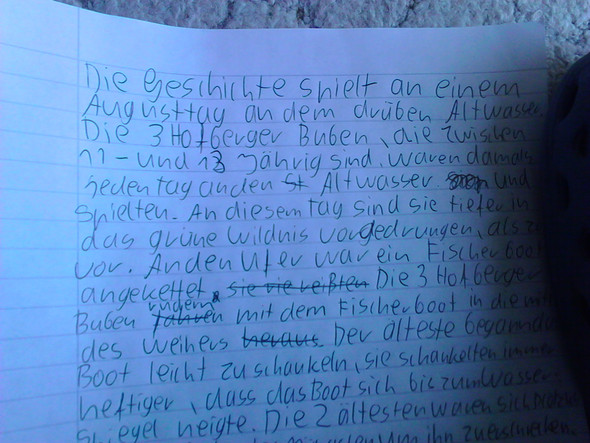 Die Geschichte spielt an einem
Augusttag an dem drüben Altwasser.
Die 3 Hofberger Buben, die zwischen
11- und 13 Jährig sind, waren damals
jeden tag an den Altwasser und
spielten. An diesem tag sind sie tiefer in
das grüne Wildnis vorgedrungen, als
vor. An den Ufer war ein Fischerboot
angekettet. sie rissen Die 3 Hofberger
Buben rudern mit dem Fischerboot in die
des weihers heraus Der älteste begann
Boot leicht zu schaukeln, sie schaukelten immer
heftiger, dass das Boot sich bis zum Wasser-
spiegel neigte. Die 2 ältesten waren sich
um ihn zuerschießen.